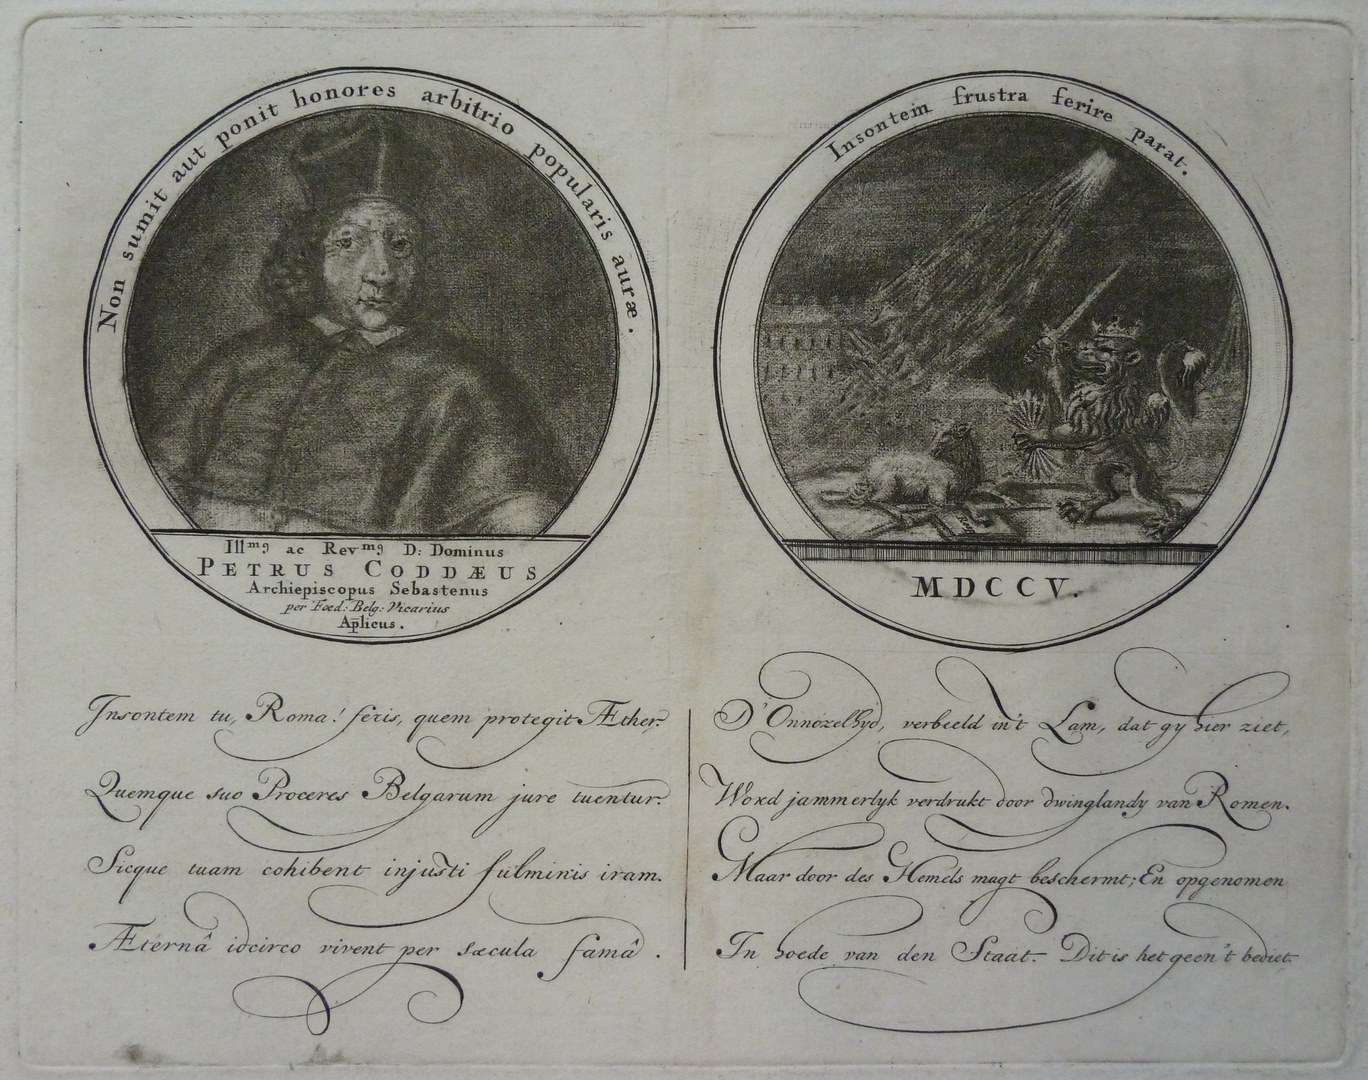 Non sumit aut ponit honores arbitrio popularis auræ.
Illmꝰ ac Revmꝰ D: Dominus
PETRUS CODDÆUS
Archiepiscopus Sebastenus
per Foed: Belg: Vicarius
Ap̄licus.
Insontem frustra ferire parat.
MDCCV.
Insontem tu, Roma! feris, quem protegit Æther:
Quemque suo Proceres Belgarum jure tuentur:
Sicque tuam cohibent injusti fulminis iram.
Æternâ idcirco vivent per sæcula famâ.
D'Onnozelhyd, verbeeld in't Lam, dat gy hier ziet,
Word jammerlyk verdrukt door dwinglandy van Romen.
Maar door des Hemels magt beschermt; En opgenomen
In hoede van den Staat. Dit is het geen't bediet.